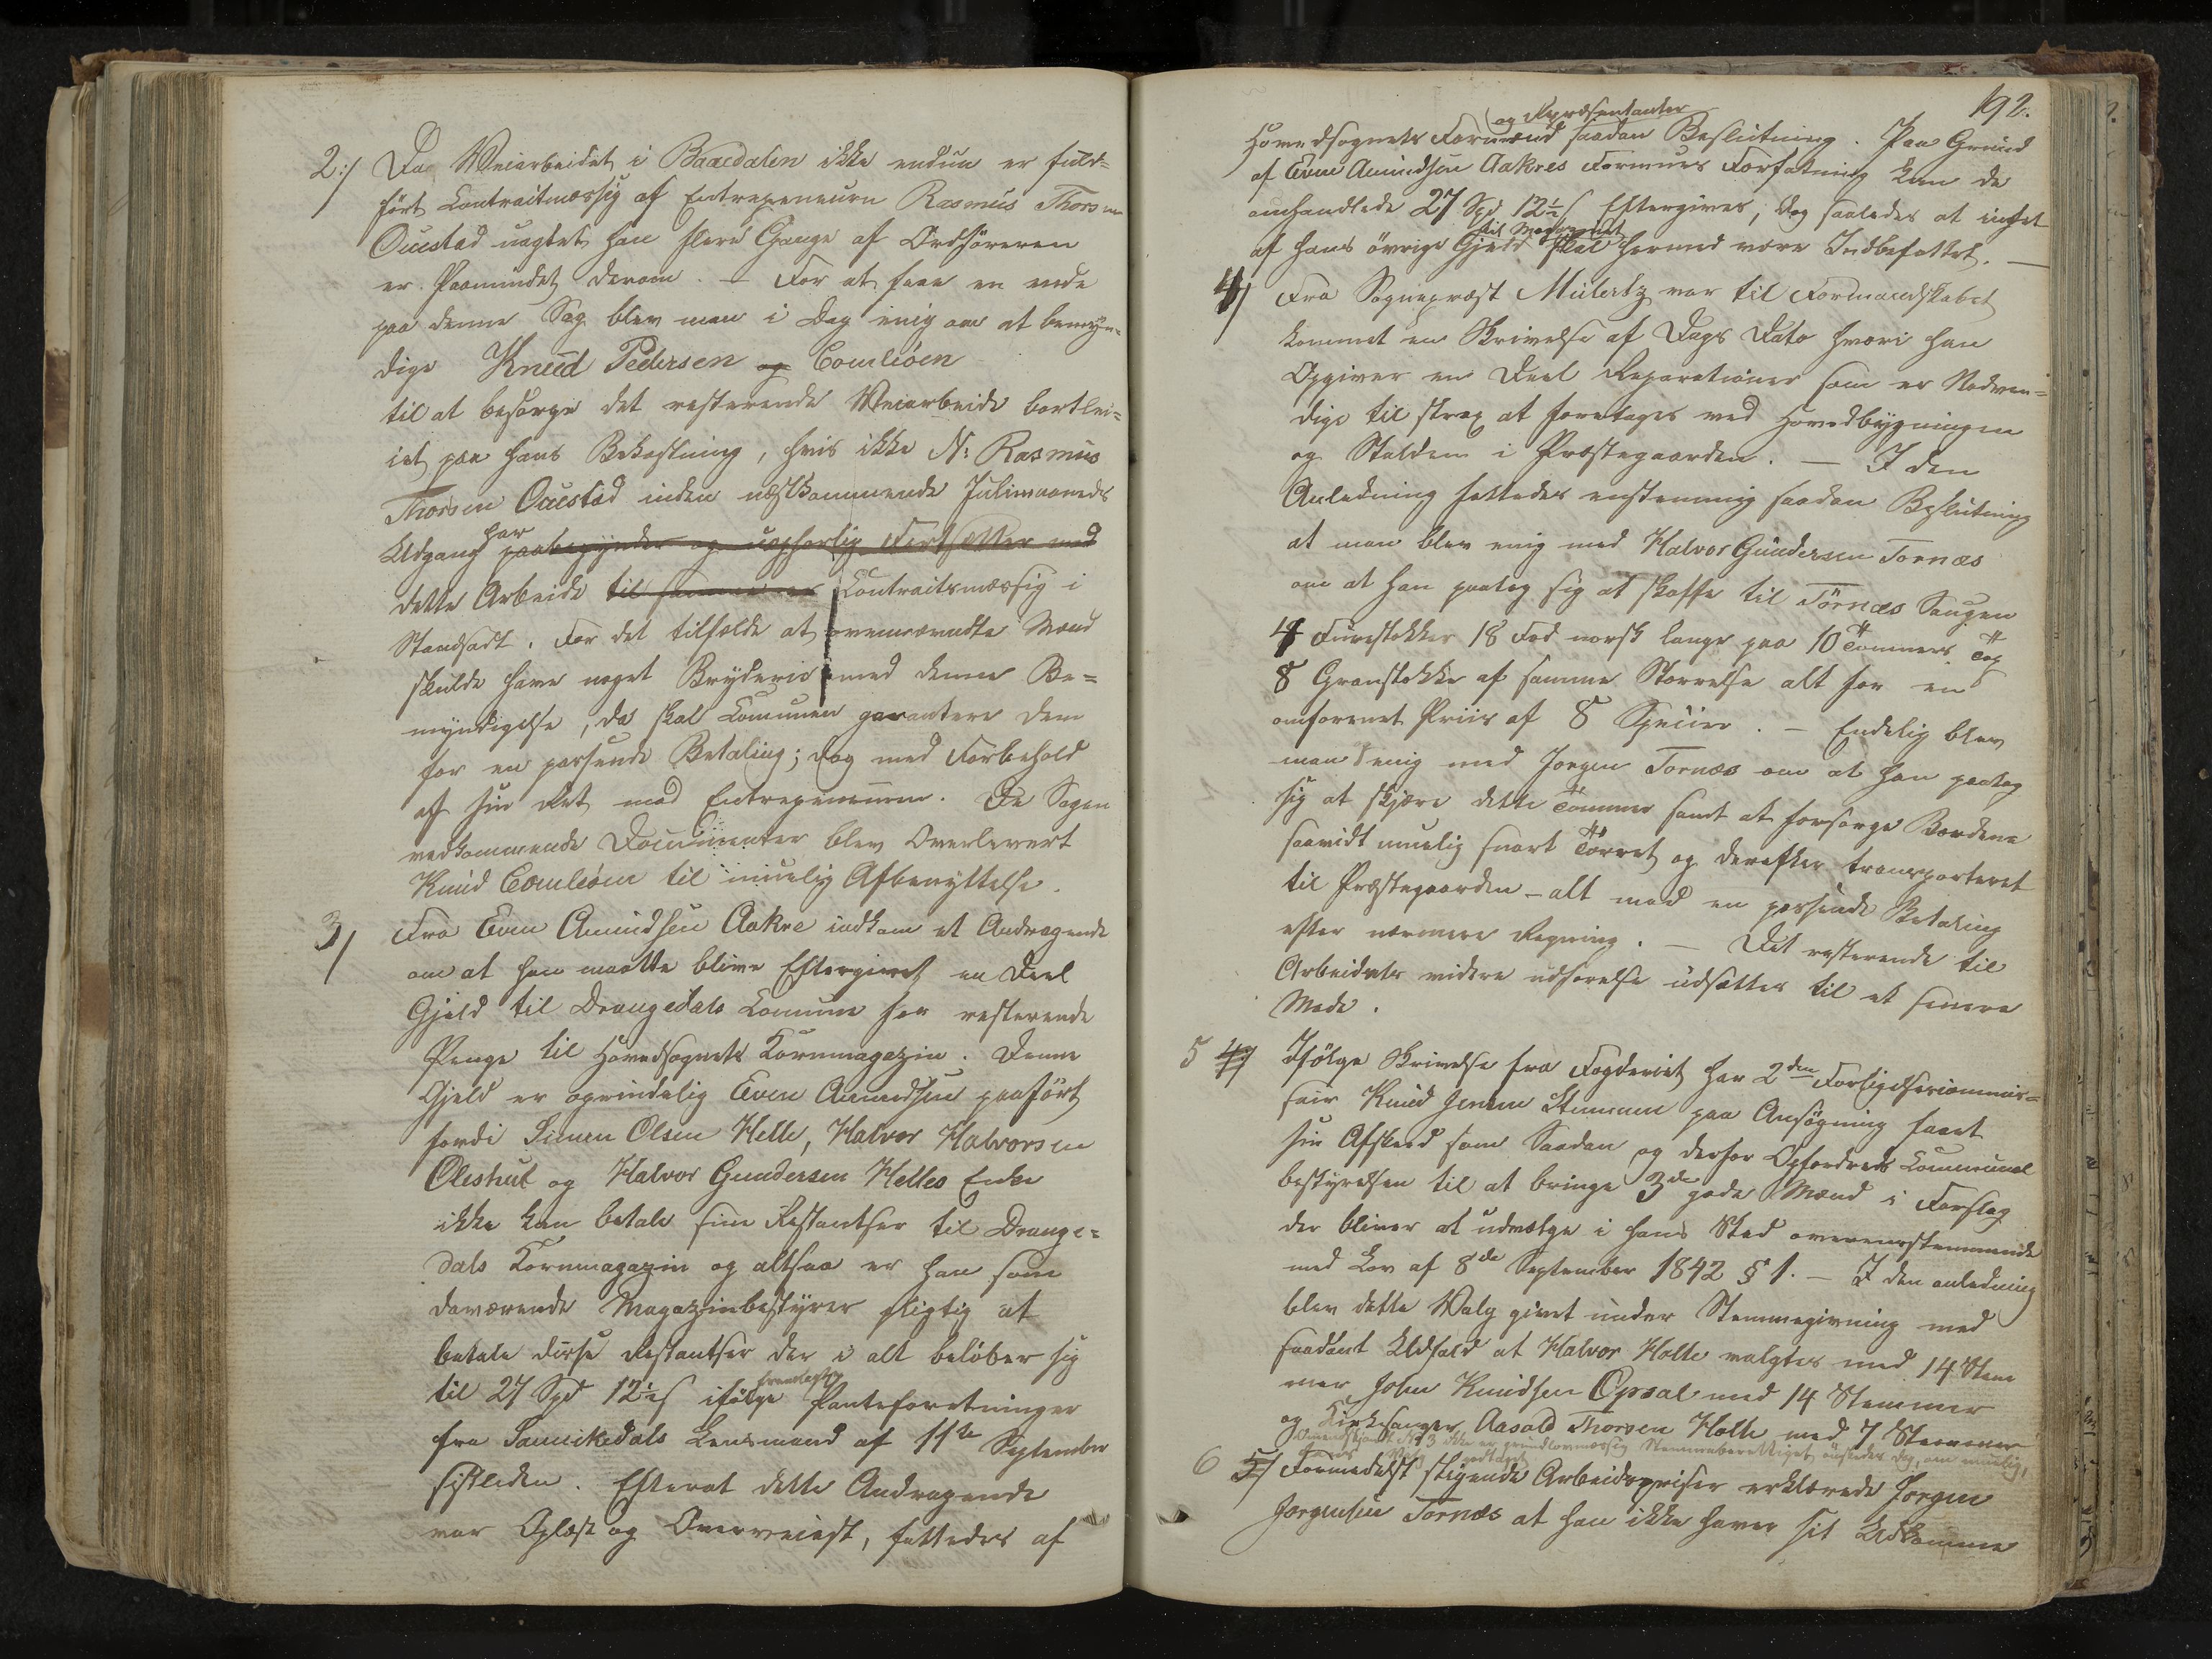 2:/ Da Veiarbeidet i Baardalen ikke endnu er fuld=
ført Contraktmæssig af Entrepeneurn Rasmus Thorsen
Ouestad uagtet han flere Gange af Ordføreren
er Paamindet derom. – For at faae en ende
paa denne Sag blev man i Dag enig om at bemyn=
dige Knud Pedersen og Eomlioen
til at besørge det resterende Veiarbeide bortlei=
et paa hans Bekostning, hvis ikke N: Rasmus
Thorsen Ouestad inden næstkommende Julimaaneds
har
Udgang paabegynder og uophørlig Fortsætter med
dette Arbeide til samme er Contraktsmæssig i
Standsadt. For det tilfælde at ovennævndte Mænd
skulde have noget Bryderie med denne Be=
myndigelse, da skal Comunen garantere dem
for en passende Betaling; dog med Forbehold
af sin Ret mod Entrepeneuren. De Sagen
vedkommende Documenter blev Overleveret
Knud Eomlioen til muelig Afbenyttelse.
3/ Fra Even Amundsen Aakre indkom et Andragende
om at han maatte blive Eftergivet en Deel
Gjeld til Drangedals Comune for resterende
Penge til Hovedsognets Kornmagazin. Denne
Gjeld er oprindelig Even Amundsen paaført
fordi Simen Olsen Helle, Halvor Halvorsen
Oleshut og Halvor Gundersen Helles Enke
ikke kan betale sine Restantser til Drange=
dals Kornmagazin og altsaa er han som
daværende Magazinbestyrer pligtig at
betale disse Restantser der i alt beløber sig
fremlagte
til 27 Spd 12½ s ifølge Panteforretninger
fra Sannikedals Lensmand af 11te September
sistleden. Efterat dette Andragende
var Oplæst og Overveiest, fattedes af
192.
og Repræsentanter
Hovedsognets Formænd saadan Beslutning. Paa Grund
af Even Amundsen Aakres Formues Forfatning kan de
omhandlede 27 Spd 12½ s Eftergives, dog saaledes at intet
til Magazinet
af hans øvrige Gjeld skal hermed være Indbefattet. —
4/ Fra Sognepræst Mülertz var til Formandskabet
kommet en Skrivelse af Dags Dato hvori han
Opgiver en Deel Reparationer som er Nødven=
dige til strax at foretages ved Hovedbygningen
og Stalden i Præstegaarden. — I den
Anledning fattedes enstemmig saadan Beslutning
at man blev enig med Halvor Gundersen Tornæs
om at han paatog sig at skaffe til Törnæs Saugen
4 Furestokker 18 Fod norsk lange paa 10 Tommers Top
8 Granstokke af samme Størrelse alt for en
omforenet Priis af 8 Specier. – Endelig blev
man enig med Jørgen Tornæs om at han paatog
sig at skjære dette Tømmer samt at forsørge Bordene
saavidt muelig snart Tørret og derefter transporteret
til Præstegaarden – alt mod en passende Betaling
efter nærmere Regning. — Det resterende til
Arbeidets videre udførelse udsættes til et senere
Møde.
5 4/ Ifølge Skrivelse fra Fogderiet har 2den Forligelsescommis=
sair Knud Jensen Stemmen paa Ansøgning faaet
sin Afskeed som Saadan og derfor Opfordreds Communal
bestyrelsen til at bringe 3de gode Mænd i Forslag
der bliver at udvælge i hans Sted overensstemmende
med Lov af 8de September 1842 § 1. – I den anledning
blev dette Valg givet under Stemmegivning med
saadant Udfald at Halvor Holte valgtes med 14 Stem
mer, John Knudsen Opsal med 14 Stemmer
og Kirkesanger Aasold Thorsen Holte med 7 Stemmer
Omendskjøndt No 3 ikke er grundlovmæssig Stemmeberettiget ønskedes dog, om muelig,
6 5/ Formedelst stigende Arbeidspriser erklærede Jørgen
Jørgensen Tornæs at han ikke haver sit Udkomme